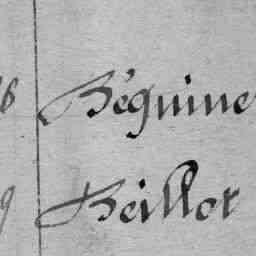 6 Béguine
9 Beillot